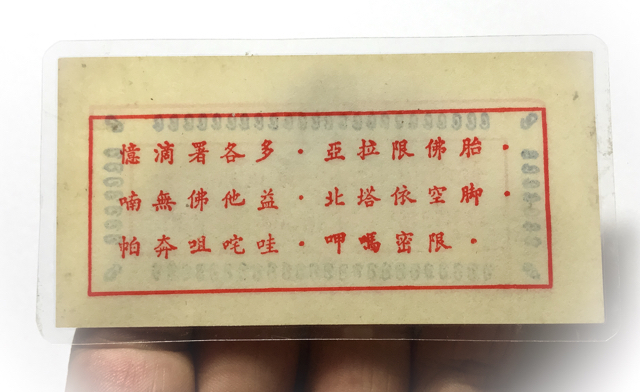 憶滴署各多·亞拉限佛胎·
喃無佛他益·北塔依空脚·
帕奔咀咤哇·呷嗎密限·